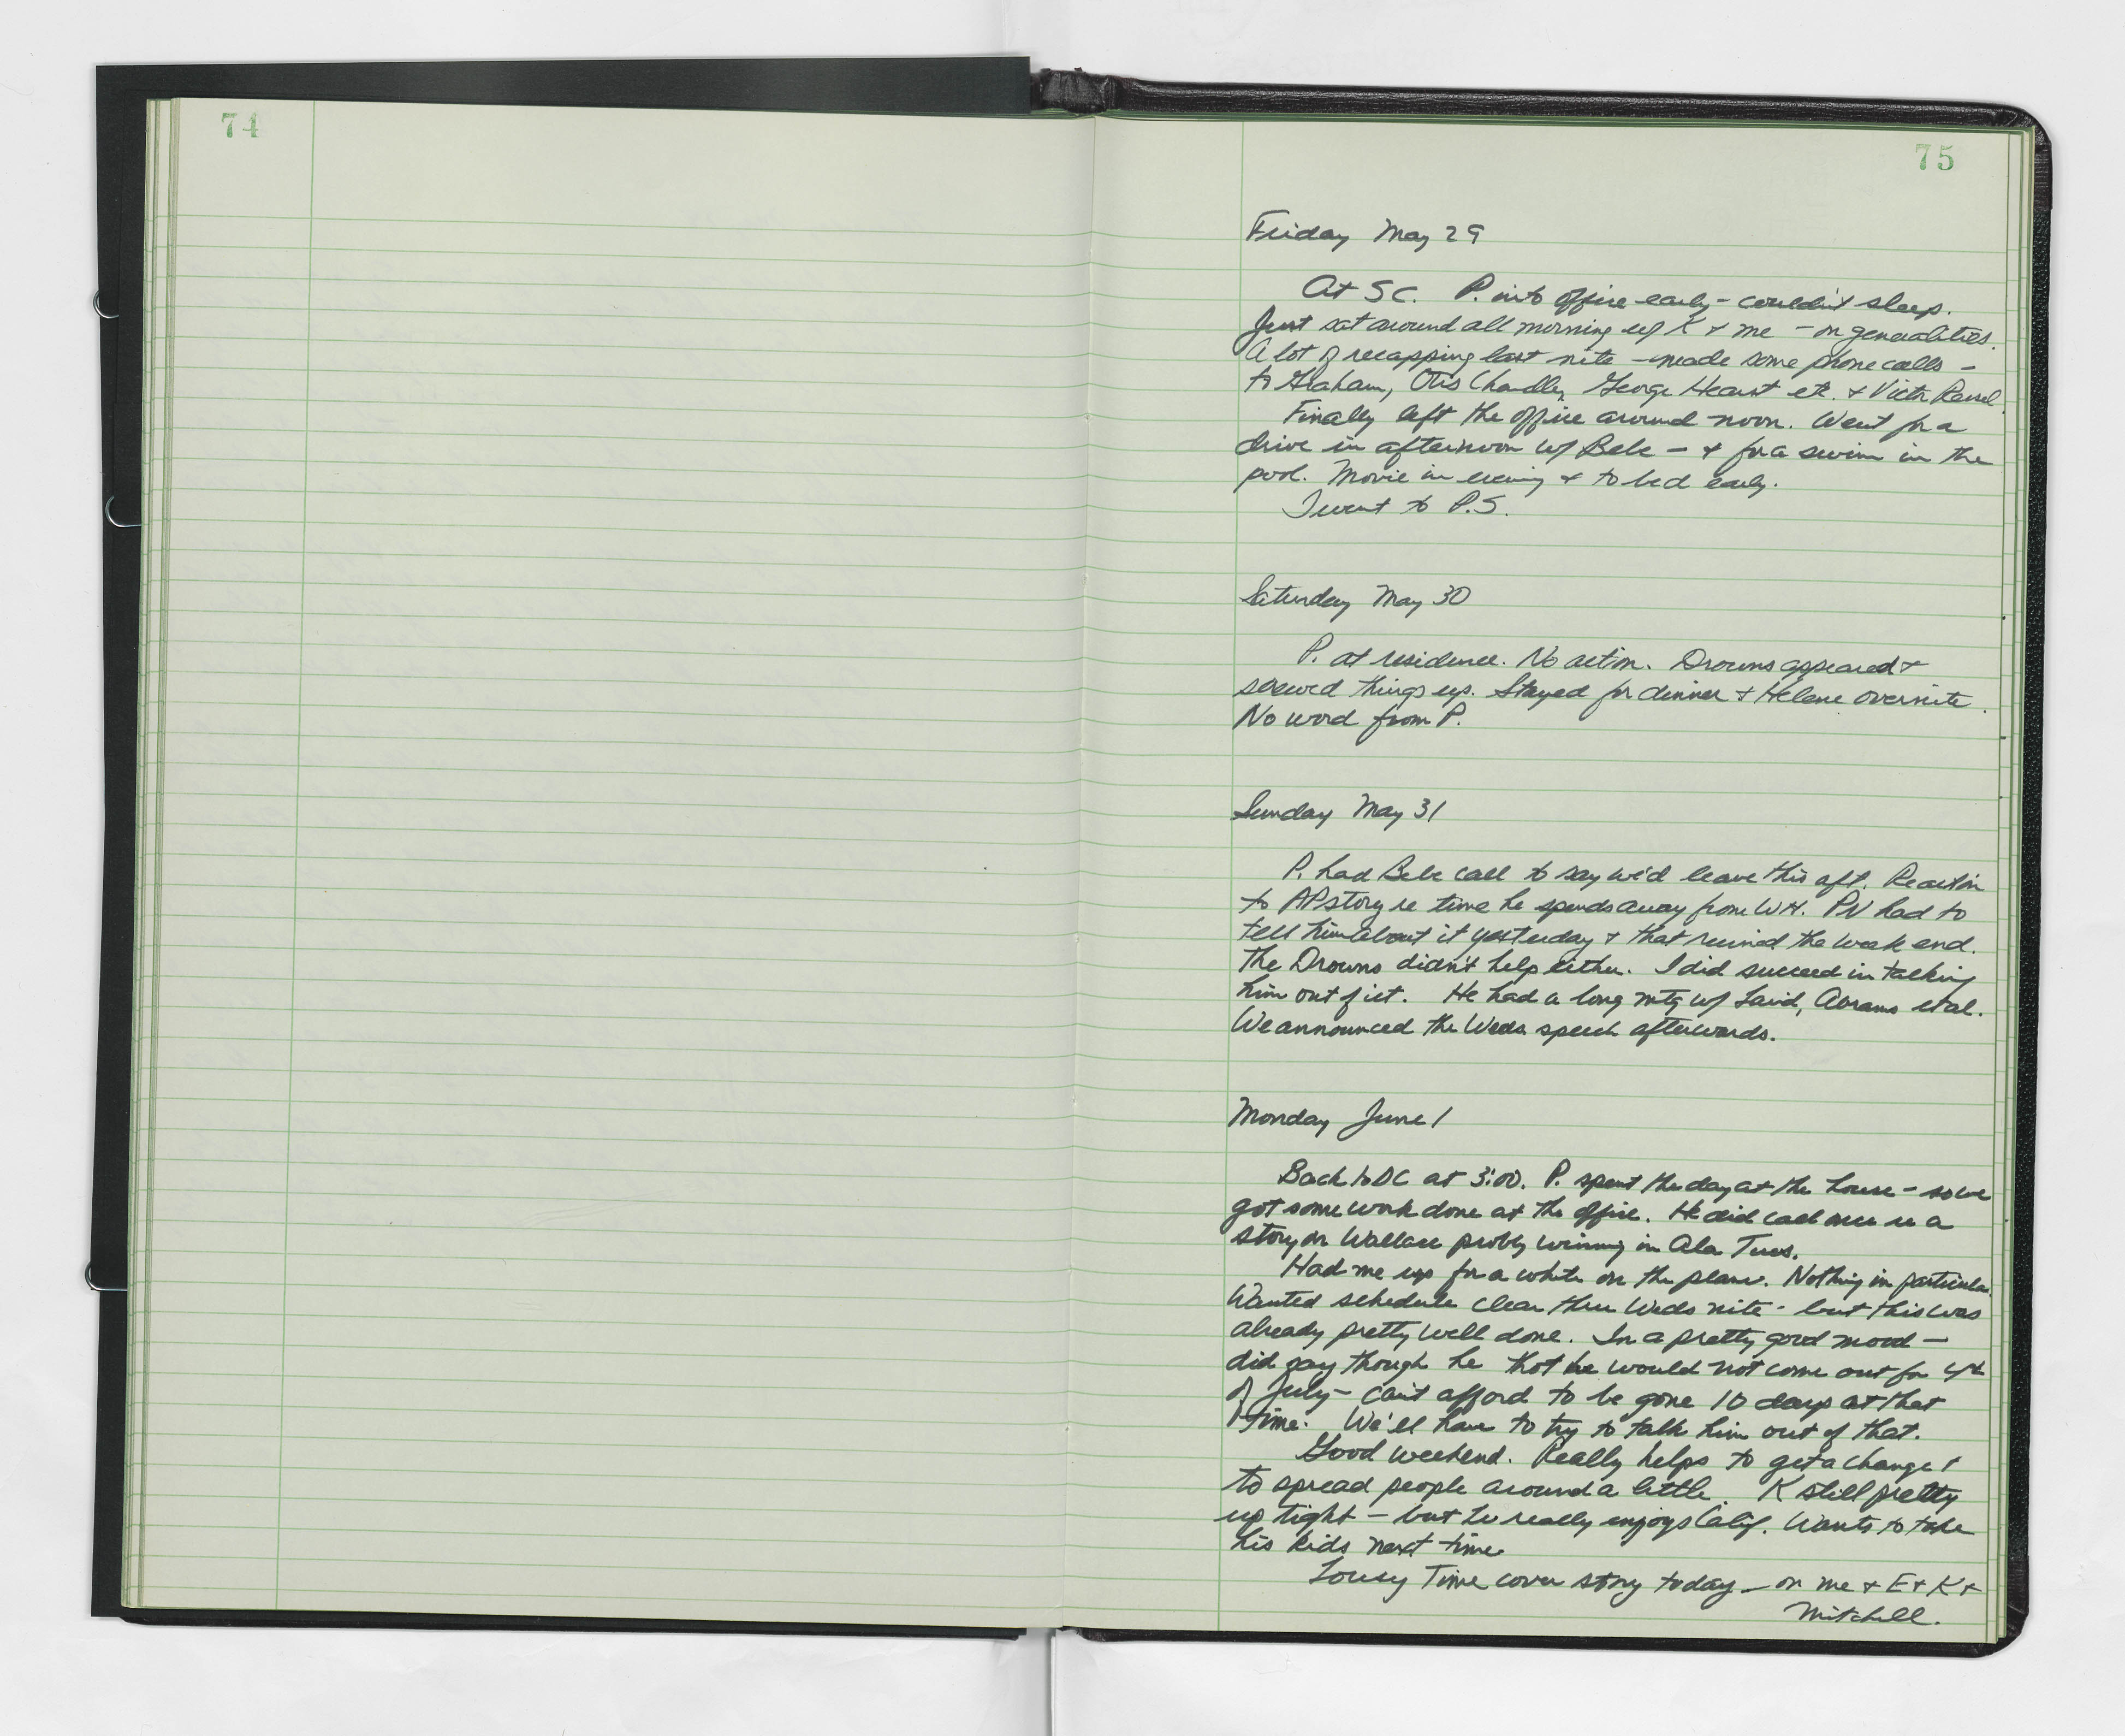 74
75
Friday May 29
At SC. P. into office early - couldn't sleep.
Just sat around all morning w/ K & me - on generalities.
A lot of recapping last nite - made some phone calls -
to Graham, Otis Chandler, George Hearst etc. & Victor Riesel.
Finally left the office around noon. Went for a
drive in afternoon w/ Bebe - & for a swim in the
pool. Movie in evening & to bed early.
I went to P.S.
Saturday May 30
P. at residence. No action. Drowns appeared &
screwed things up. Stayed for dinner & Helene overnite.
No word from P.
Sunday May 31
P. had Bebe call to say we'd leave this aft. Reaction
to AP story re time he spends away from WH. PN had to
tell him about it yesterday & that ruined the week end.
The Drowns didn't help either. I did succeed in talking
him out of it. He had a long mtg w/ Laird, Abrams et al.
We announced the Weds. speech afterwards.
Monday June 1
Back to DC at 3:00. P. spent the day at the house - so we
got some work done at the office. He did call once re a
story on Wallace probly winning in Ala Tues.
Had me up for a while on the plane. Nothing in particular.
Wanted schedule clear thru Weds nite - but this was
already pretty well done. In a pretty good mood -
did say though he thot he would not come out for 4th
of July - can't afford to be gone 10 days at that
time. We'll have to try to talk him out of that.
Good weekend. Really helps to get a change &
to spread people around a little. K still pretty
up tight - but he really enjoys Calif. Wants to take
his kids next time.
Lousy Time cover story today - on me & E & K &
Mitchell.